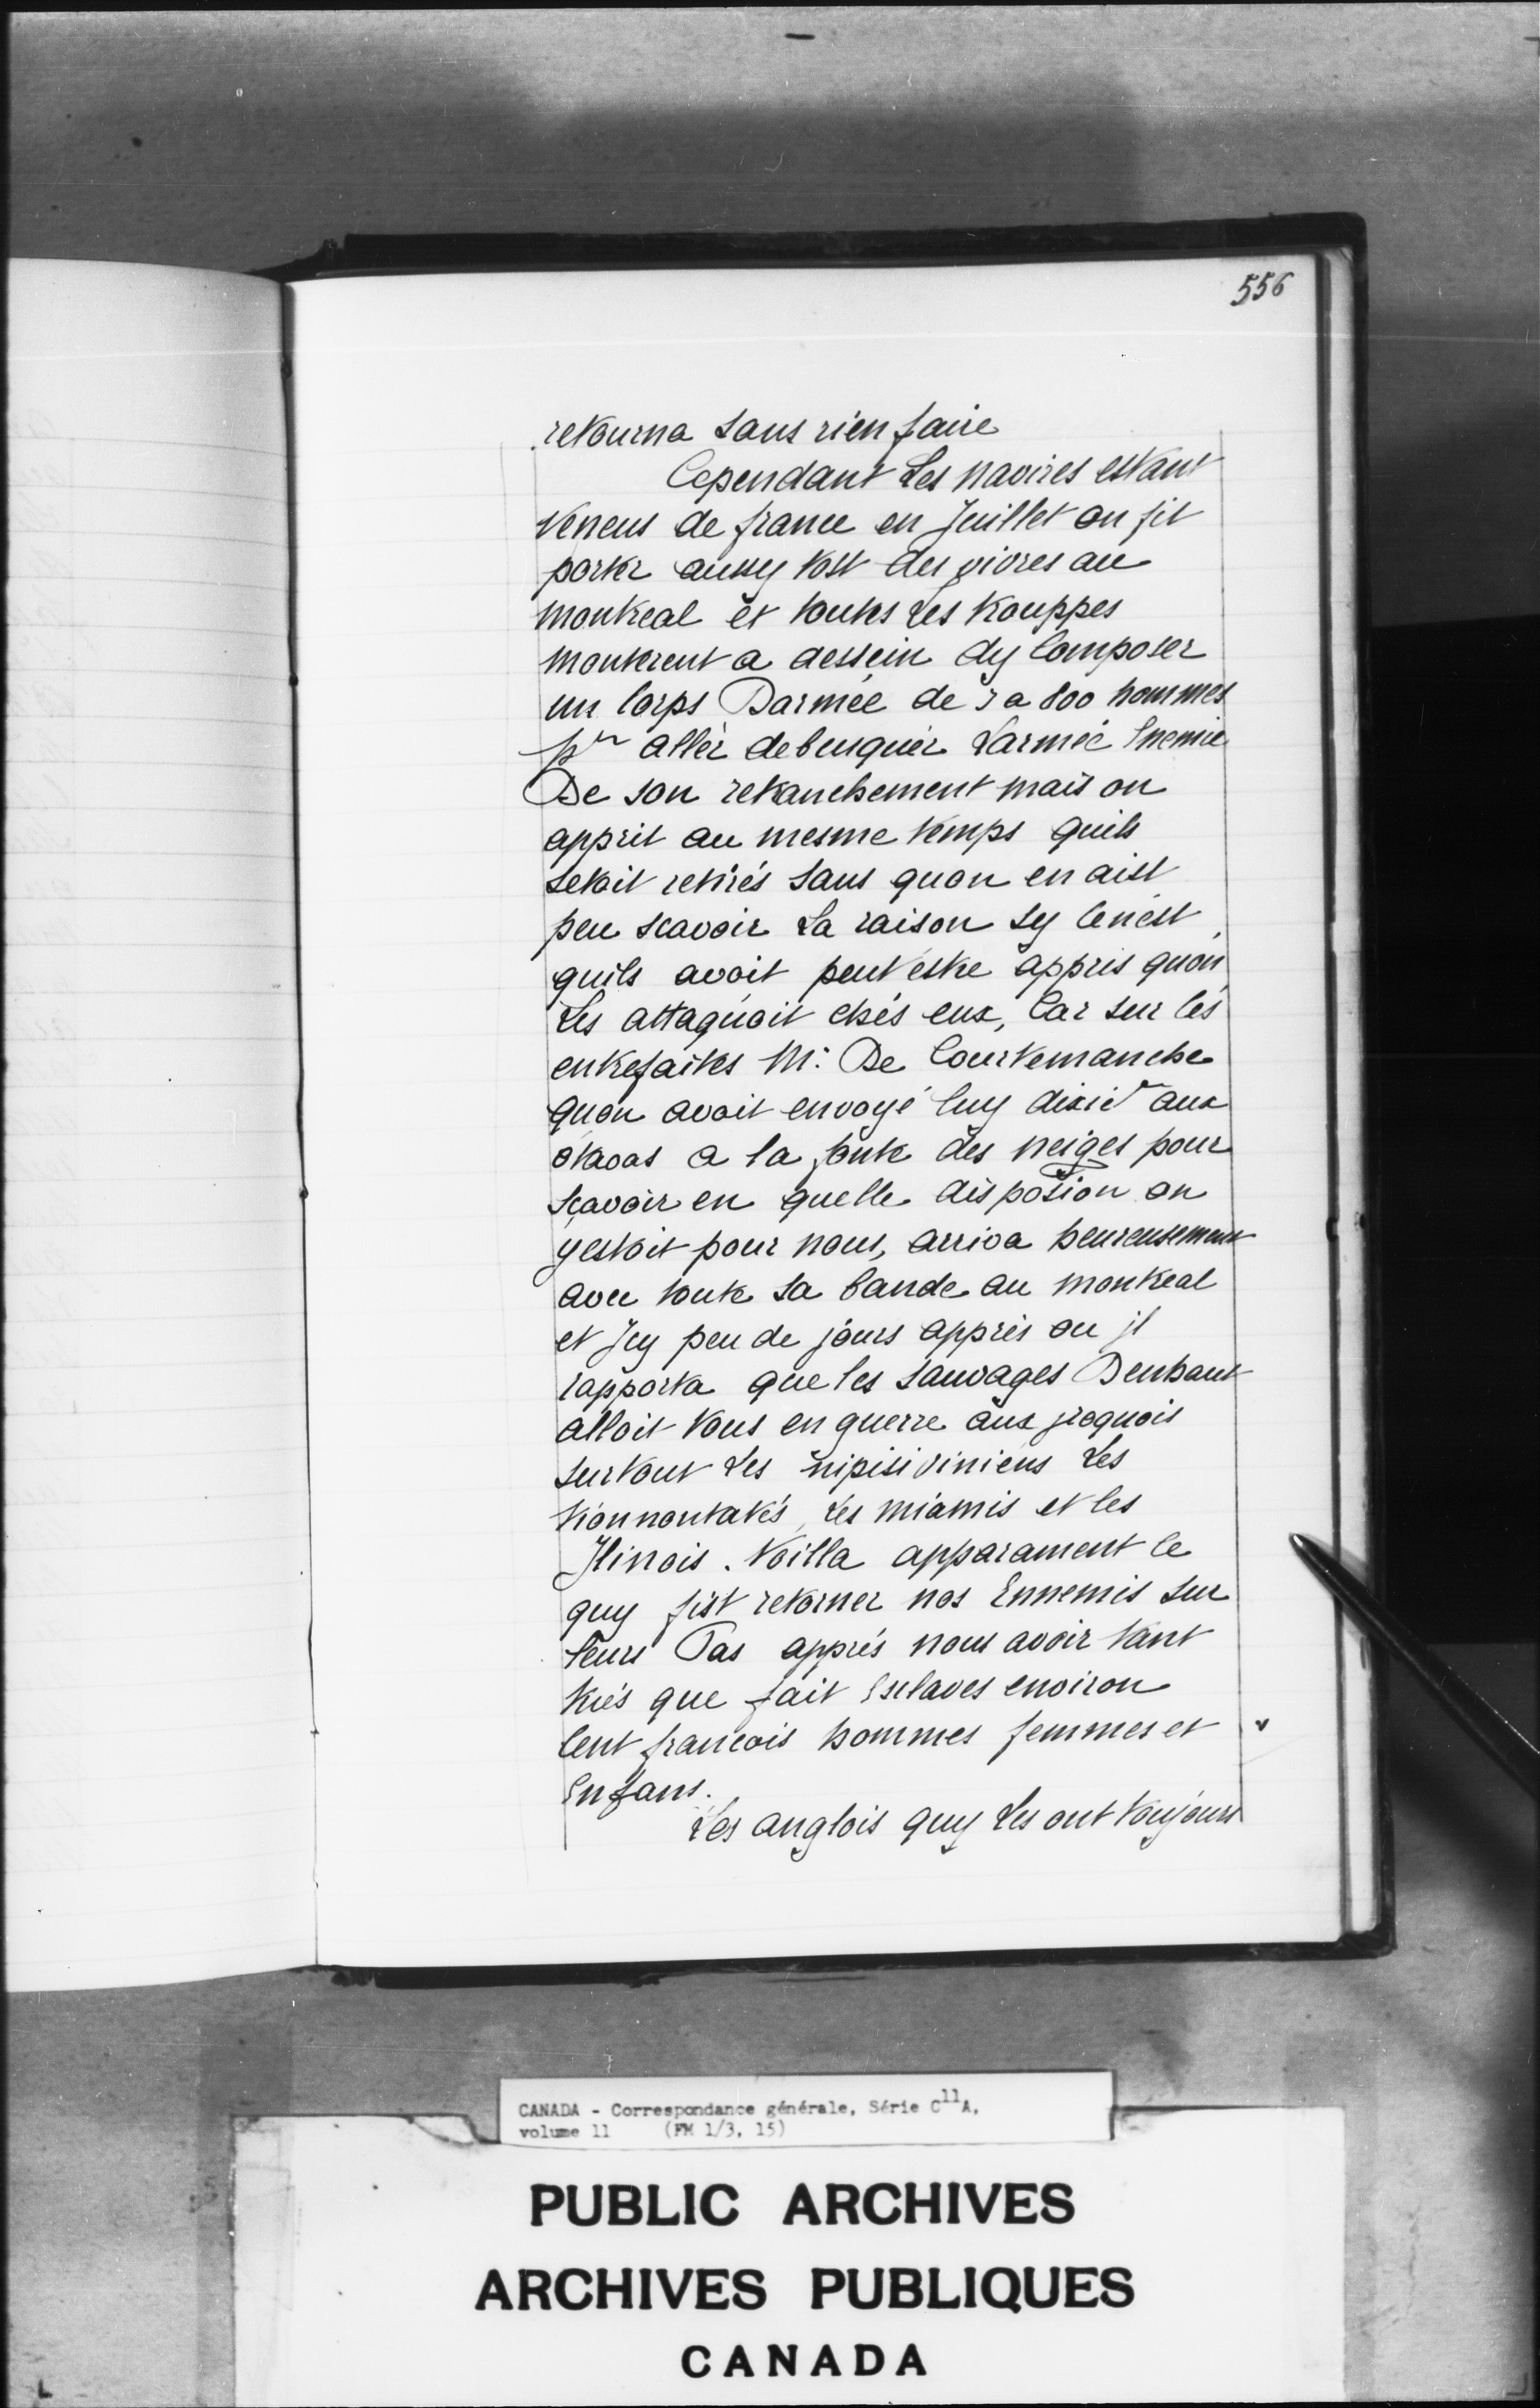 556
retourna sans rien faire
Cependant Les navires estant
Veneus de france en Juillet on fit
porter aussy tost des vivres au
montreal et toutes Les trouppes
monterent a dessein dy Composer
un Corps Darmée de 7 a 800 hommes
pr aller debusquer Larmée Enemie
De son retranchement mais on
apprit au mesme temps quils
setoit retirés sans quon en aist
peu scavoir La raison sy cenest
quils avoit peut estre appris quon
Les attaquoit chés eux, Car sur les
entrefaites M: De Courtemanche
quon avoit envoyé luy dixie aux
otavas a la fonte des neiges pour
Sçavoir en quelle disposion on
yestoit pour nous, arriva heureusement
avec toute sa bande au montreal
et Jcy peu de jours apprès ou jl
rapporta que les sauvages Denhaut
alloit tous en guerre aux jroquois
surtout Les nipisiviniens Les
tionnontatés, Les miamis et les
Jlinois. Voilla apparament ce
quy fist retorner nos Ennemis sur
leurs Pas apprés nous avoir tant
tués que fait Esclaves environ
Cent francois hommes femmes et
Enfans.
Les anglois quy Les ont toujours
CANADA - Correspondance générale, Série C11A,
volume 11 (FM 1/3, 15)
PUBLIC ARCHIVES
ARCHIVES PUBLIQUES
CANADA